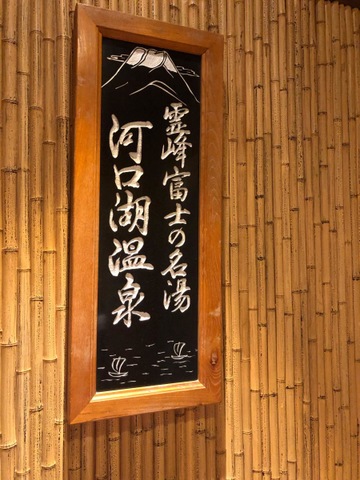 霊峰富士の名湯
河口湖温泉